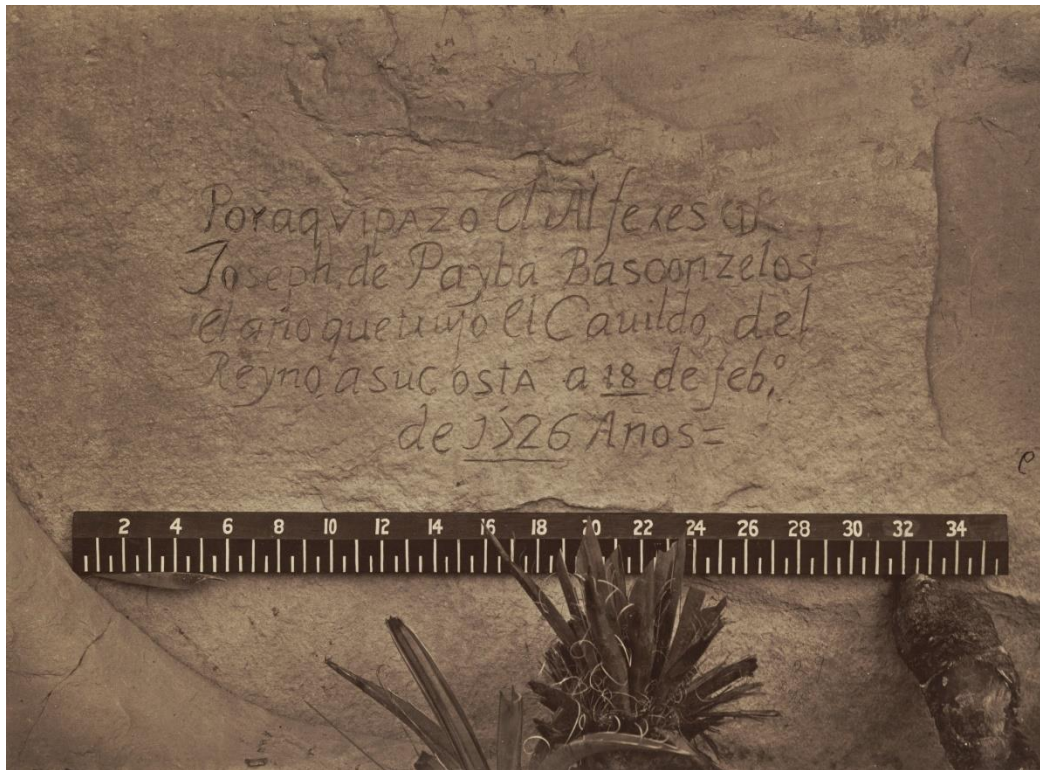 Por aqvi pAzo el Alferes Dn
Joseph, de Payba Basconzelos
el año que tujo el Cauildo, del
Reyno a su CostA a 18 de feb.º
de 1526 Años=
2 4 6 8 10 12 14 16 18 20 22 24 26 28 30 32 34
e